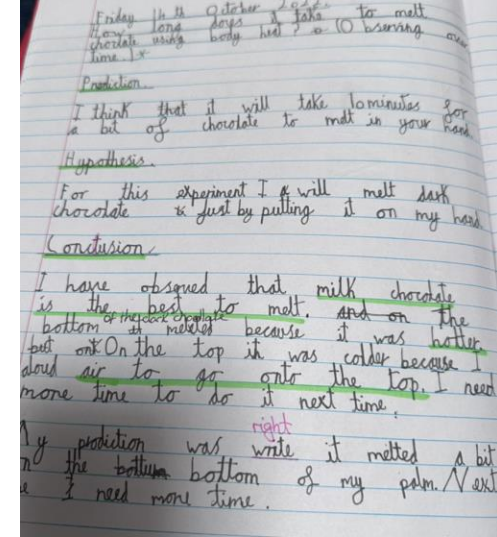 Friday 14th October
How long does it take to melt
chocolate using body heat? Observing over
time.
Prediction
I think that it will take 10 minutes for
a bit of chocolate to melt in your hand.
Hypothesis.
For this experiment I will melt dark
chocolate just by putting it on my hand.
Conclusion
I have obsqued that milk chocolate
is the best to melt. and on the
of the dark chocolate
bottom melted because it was hotter
but On the top it was colder because I
aloud air to go onto the top. I need
more time to do it next time.
right
My prediction was write it melted a bit
the bottom of my palm. Next
I need more time.